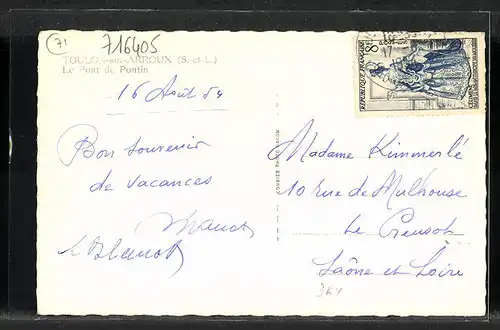 71
716405
TOULON-sur-ARROUX (S.-et-L.)
Le Pont de Pontin
16 Août 54
Bon souvenir
de vacances
Madame Kimmerlé
10 rue de Mulhouse
Le Creusot
Saône et Loire
3RY
8F
REPUBLIQUE FRANÇAISE